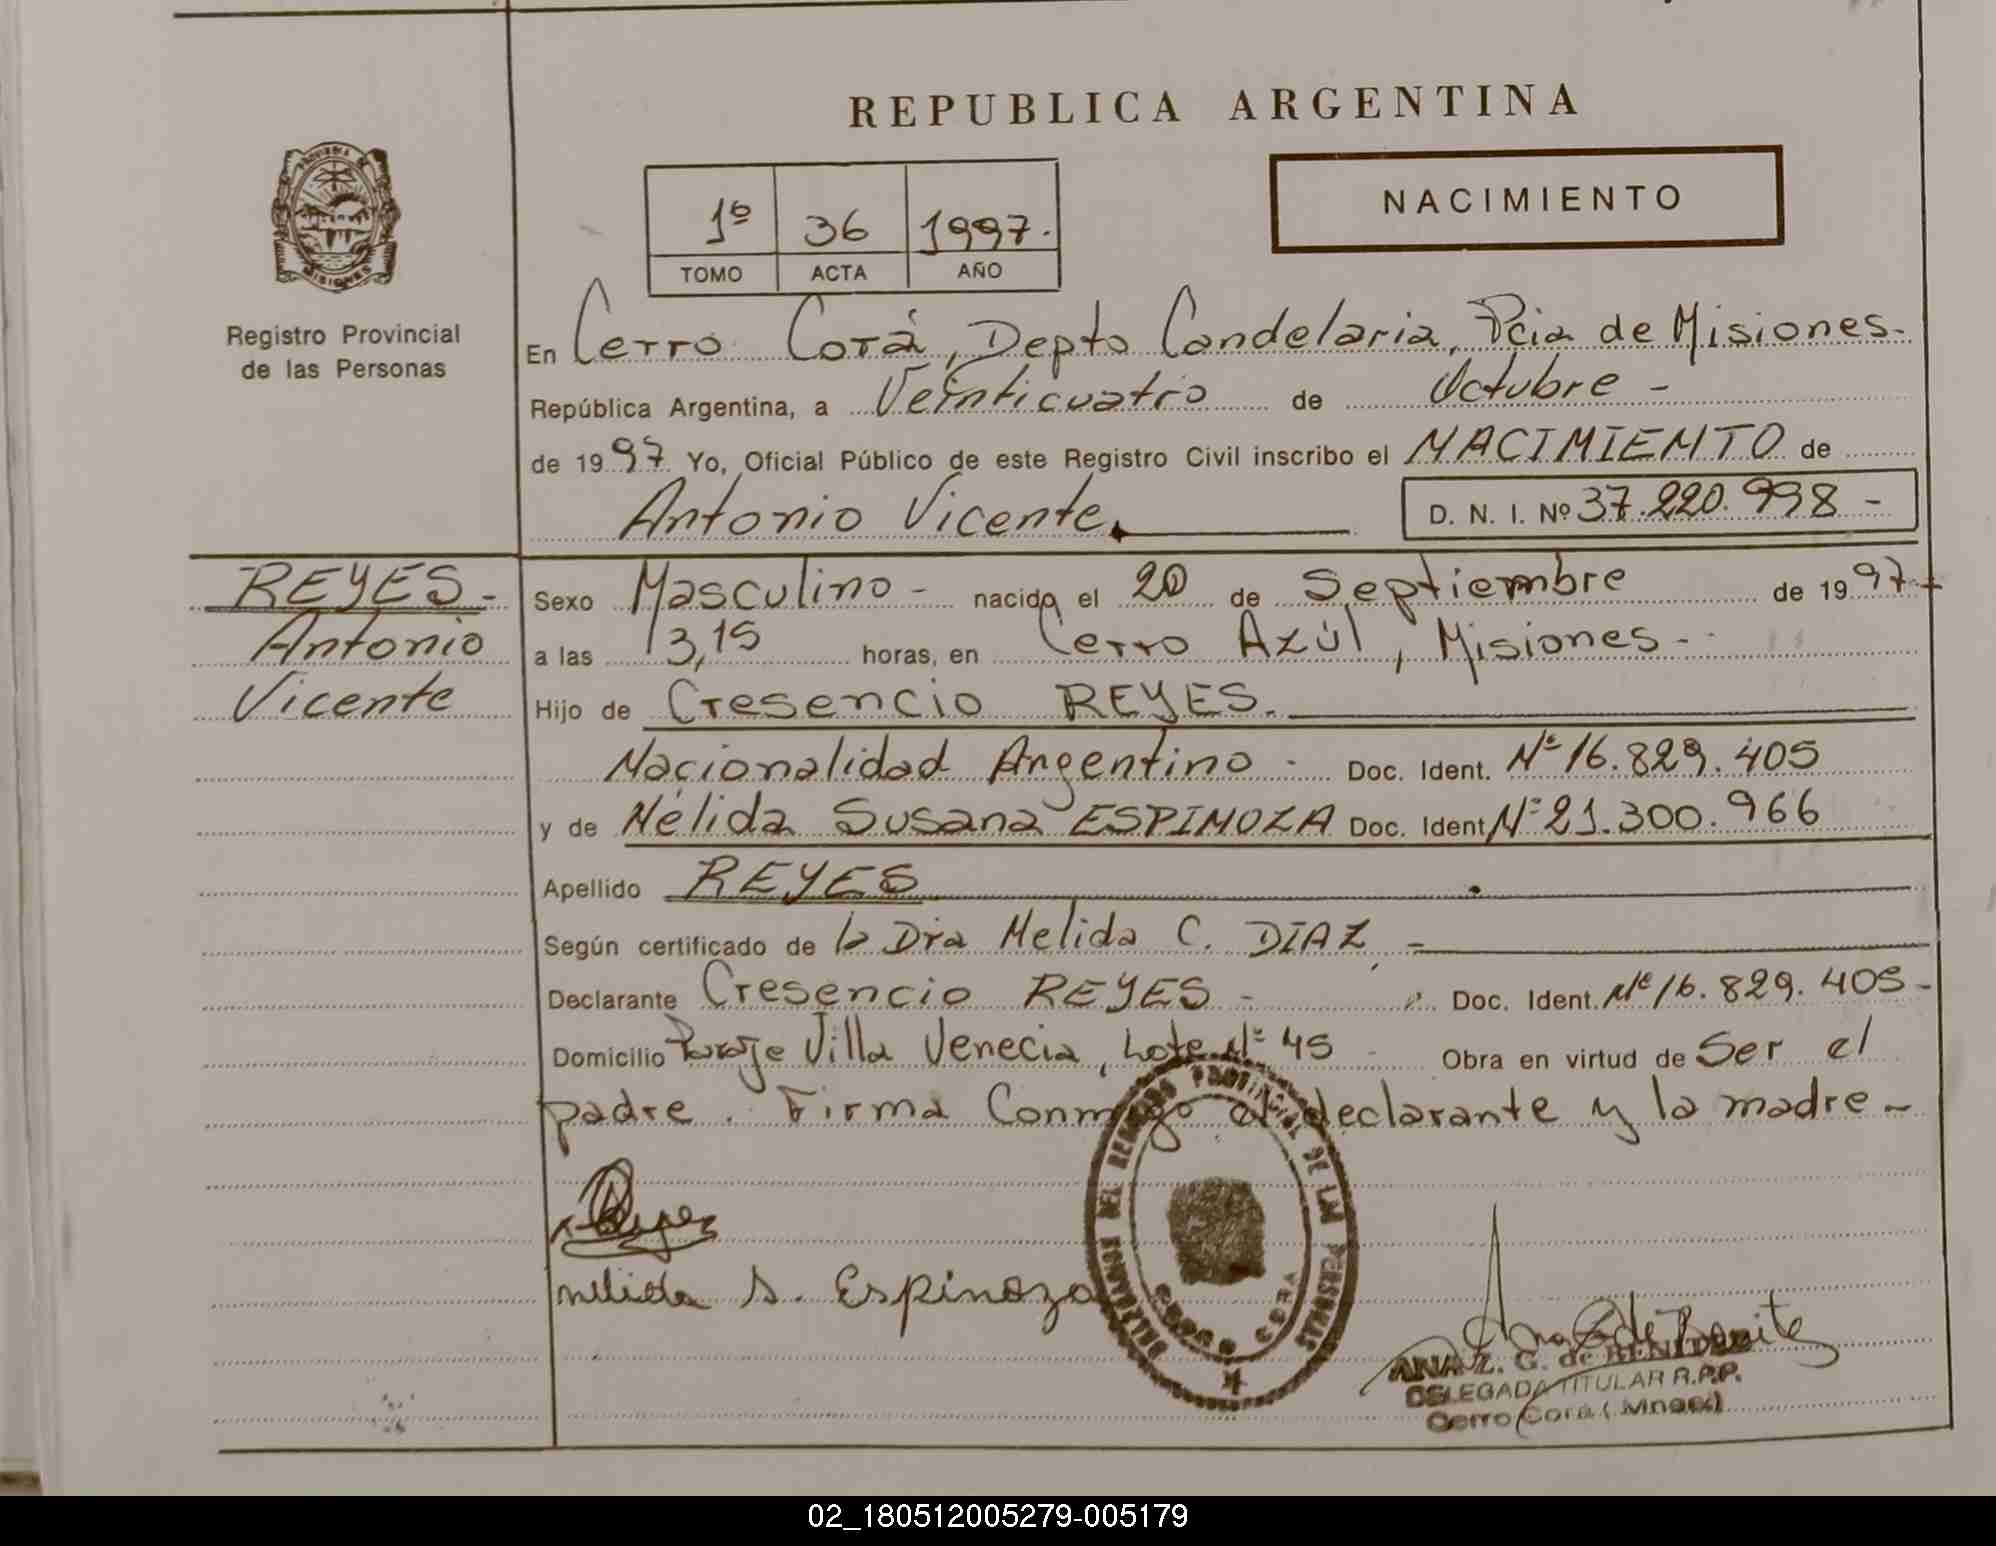 REPUBLICA ARGENTINA
PROVINCIA DE
MISIONES
Registro Provincial
de las Personas
1º 36 1997.
TOMO ACTA AÑO
NACIMIENTO
En Cerro Corá, Depto Candelaria, Pcia de Misiones.-
República Argentina, a Veinticuatro de Octubre -
de 1997 Yo, Oficial Público de este Registro Civil inscribo el NACIMIENTO de
Antonio Vicente.
D. N. I. Nº 37.220.998 -
REYES -
Antonio
Vicente
Sexo Masculino - nacido el 20 de Septiembre de 1997-
a las 13,15 horas, en Cerro Azúl, Misiones -
Hijo de Cresencio REYES.
Nacionalidad Argentino - Doc. Ident. Nº 16.829.405
y de Nélida Susana ESPINOZA Doc. Ident Nº 21.300.966
Apellido REYES
Según certificado de la Dra Nelida C. DIAZ -
Declarante Cresencio REYES - Doc. Ident. Nº 16.829.405 -
Domicilio Paraje Villa Venecia, Lote Nº 45 - Obra en virtud de Ser el
padre. Firma Conmigo el declarante y la madre -
Reyes
nelida S. Espinoza
DELEGACION DEL REGISTRO PROVINCIAL DE LAS PERSONAS
CERRO CORA
Ana G de Benitez
ANA Z. G. de BENITEZ
DELEGADA TITULAR R.P.P.
Cerro Corá (Mnes)
02_180512005279-005179